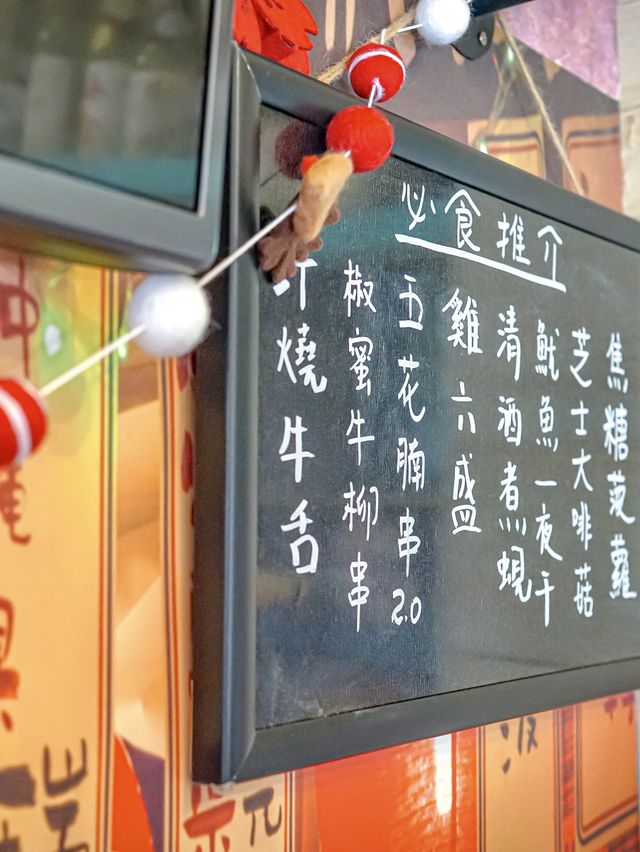 必食推介
燒牛舌
椒蜜牛柳串
五花腩串2.0
雞六盛
清酒煮蜆
魷魚一夜干
芝士大啡菇
焦糖菠蘿